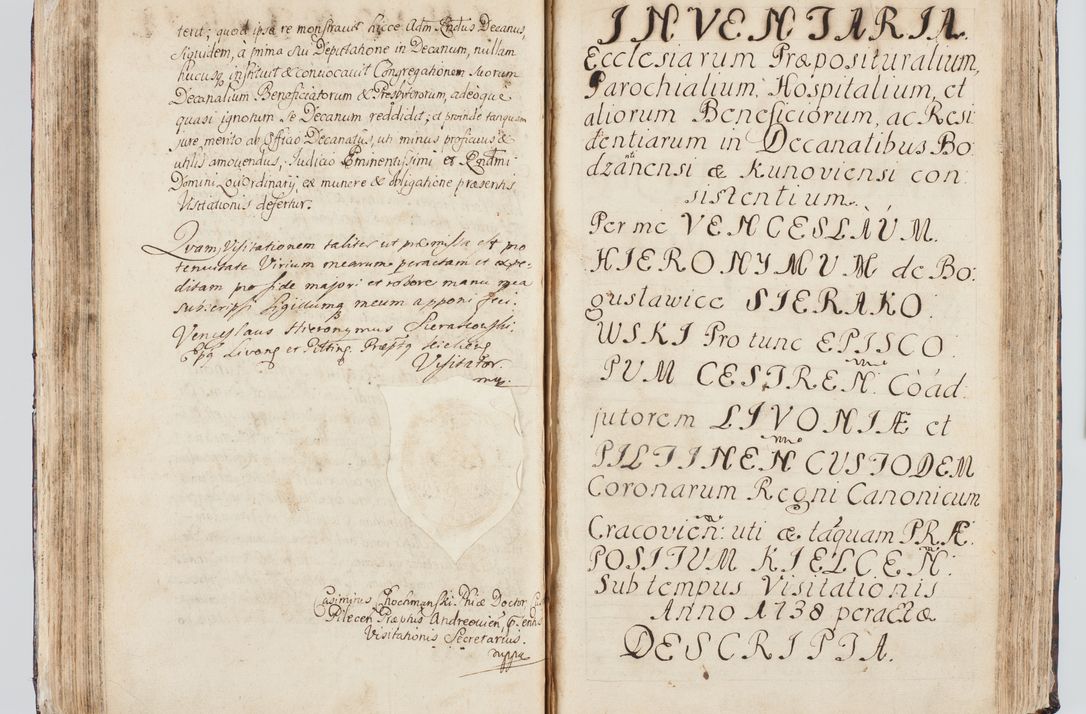 tent; quod ipsa re monstravit hicce Adm Rndus Decanus,
siquidem, à prima sui Deputatione in Decanum, nullam
hucusq instituit & convocavit Congregationem suorum
Decanalium Beneficiatorum & Presbiterorum, adeoque
quasi ignotum se Decanum reddidit; et proinde tanquam
jure merito ab officio Decanatus, uti minus proficuus &
utilis amovendus, Judicio Eminentissimi et Rndmi
Domini Loci Ordinarij ex munere & obligatione præsentis
Visitationis defertur.
Quam Visitationem taliter ut præmissa est pro
tenuitate Virium mearum peractam et expe-
ditam pro fide majori et robore manu mea
subscripsi Sigillumq meum apponi feci.
Venceslaus Hieronymus Sierakowski
Epps Livonę et Piltinę. Præpstq Kielcēn
Visitator
mp.
Casimirus Chochmanski Phiæ Doctor
Pilecen Præptus Andreovien, præsentis
Visitationis Secretarius.
mppa
INVENTARIA
Ecclesiarum Præposituralium,
Parochialium, Hospitalium, et
aliorum Beneficiorum, ac Resi
dentiarum in Decanatibus Bo
dzantnensi & Kunoviensi con
sistentium.
Per me VENCESLAUM.
HIERONYMUM de Bo:
guslawice SIERAKO
WSKI Pro tunc EPISCO
PUM CESTREN: Coad
jutorem LIVONIÆ et
PILTINEN CUSTODEM
Coronarum Regni Canonicum
Cracovien: uti & taquam PRÆ
POSITUM KIELCEN:
Sub tempus Visitationis
Anno 1738 peractæ
DESCRIPTA.